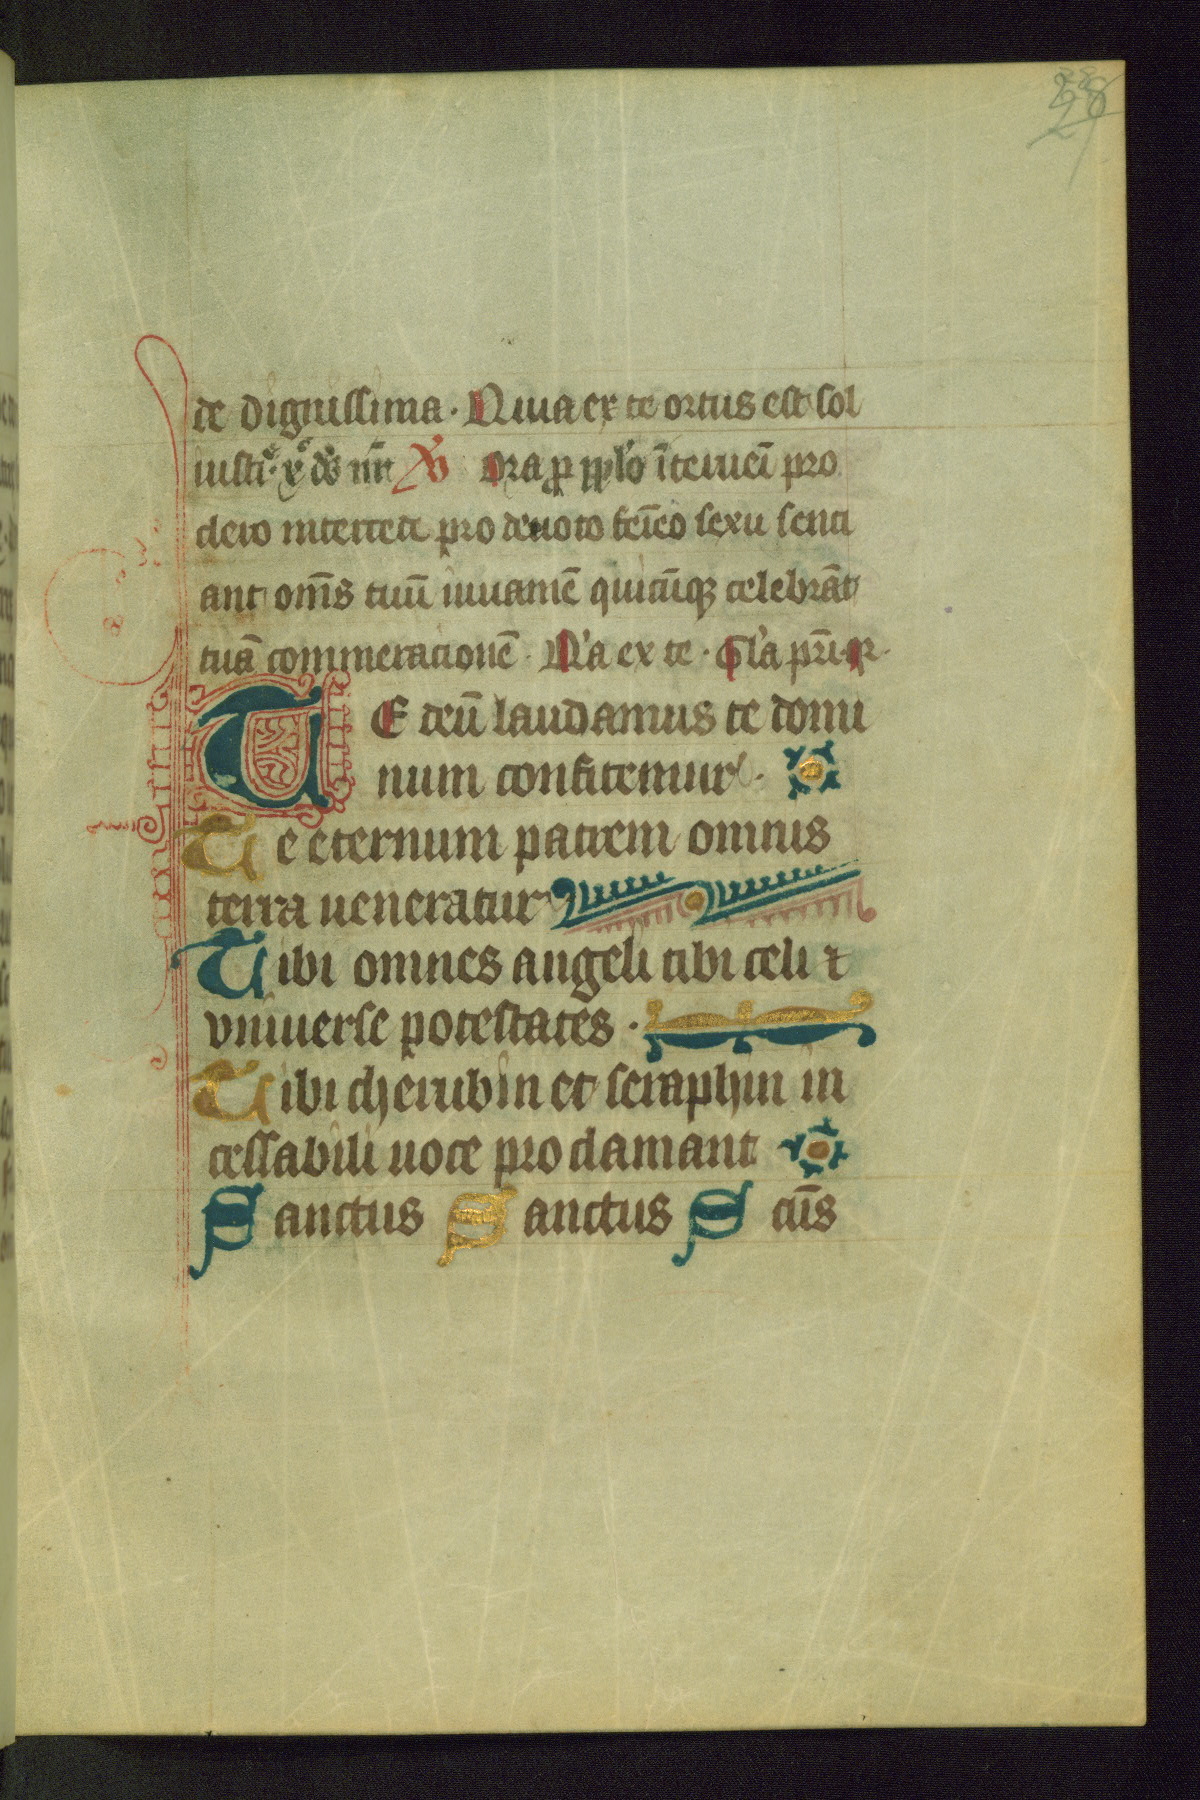 28
de dignissima. Quia ex te ortus est sol
iusti. xp̄s ds nr̄ Vs Ora p ppl'o īteruēi pro
clero intercede pro deuoto fēīeo sexu senci
ant om̄s tuū iuuamē quicūqz celebrāt
tuā commeracionē. Q'a ex te. Gl'a pr̄i. Qr.
TE deū laudamus te domi
num confitemur.
Te eternum patrem omnis
terra ueneratur
Tibi omnes angeli tibi celi ⁊
vniuerse potestates.
Tibi cherubin et seraphin in
cessabili uoce proclamant
Sanctus Sanctus Scūs